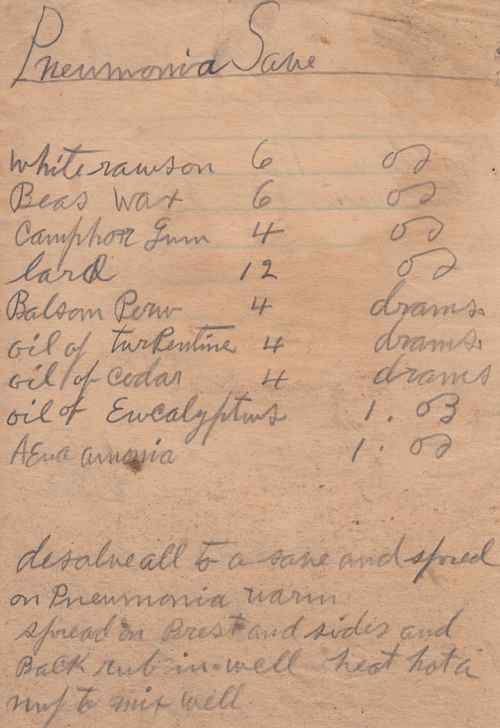 Pneumonia Save
white rawson 6 oz
Beas Wax 6 oz
Camphor Gum 4 oz
lard 12 oz
Balsom Peru 4 drams.
oil of turpentine 4 drams.
oil of cedar 4 drams
oil of Eucalyptus 1. oz
AEua amonia 1. oz
desolve all to a save and spred
on Pneumonia warm
spread on Brest and sides and
Back rub in well heat hot a
nuf to mix well